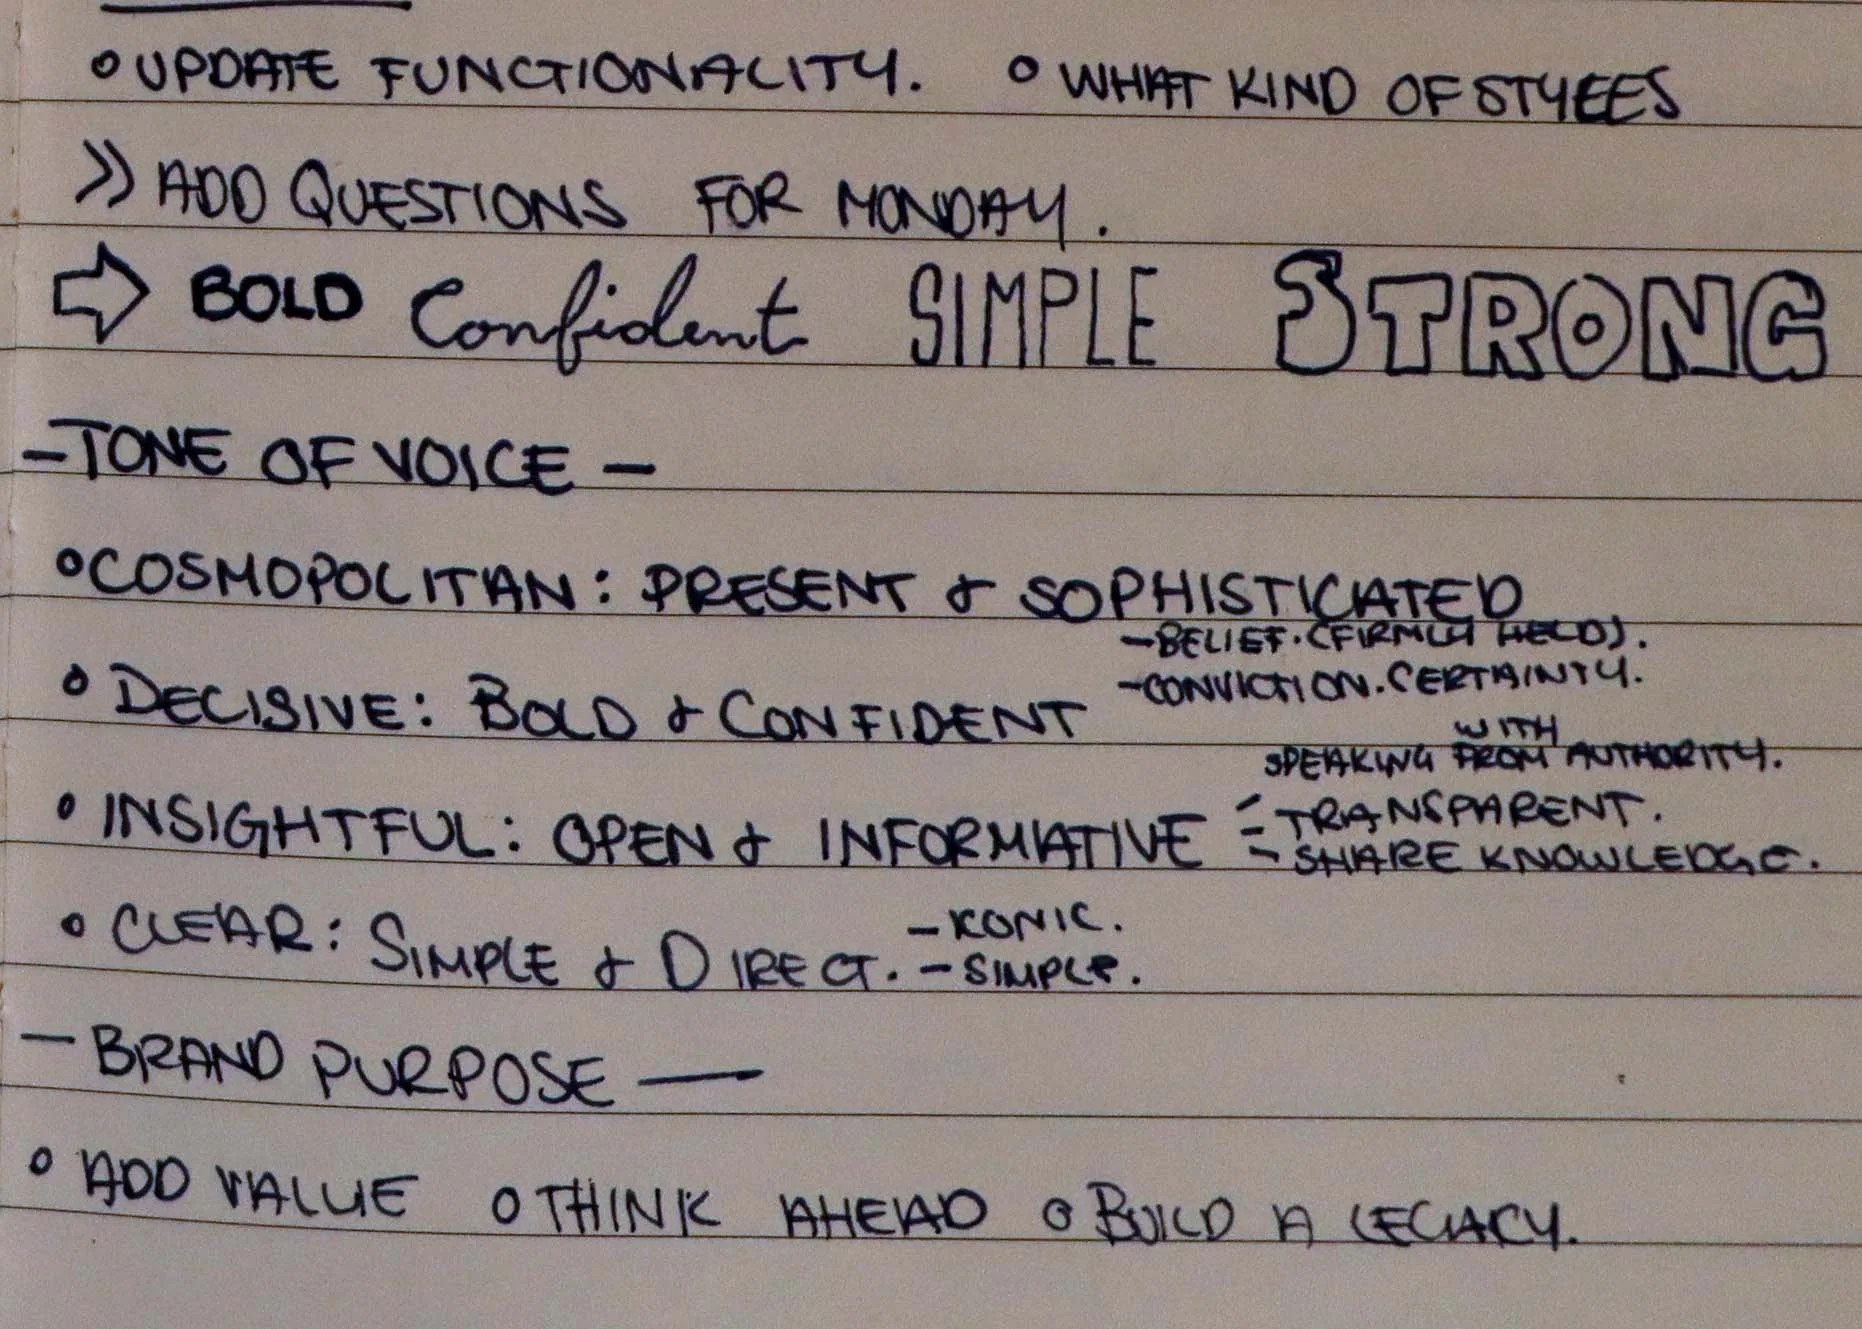 • UPDATE FUNCTIONALITY. • WHAT KIND OF STYEES
>> ADD QUESTIONS FOR MONDAY.
⇨ BOLD Confident SIMPLE STRONG
- TONE OF VOICE -
• COSMOPOLITAN: PRESENT & SOPHISTICATED
- BELIEF. (FIRMLY HELD).
• DECISIVE: BOLD & CONFIDENT - CONVICTION. CERTAINTY.
WITH
SPEAKING FROM AUTHORITY.
• INSIGHTFUL: OPEN & INFORMATIVE - TRANSPARENT.
- SHARE KNOWLEDGE.
• CLEAR: SIMPLE & DIRECT. - ICONIC.
- SIMPLE.
- BRAND PURPOSE -
• ADD VALUE • THINK AHEAD • BUILD A LEGACY.